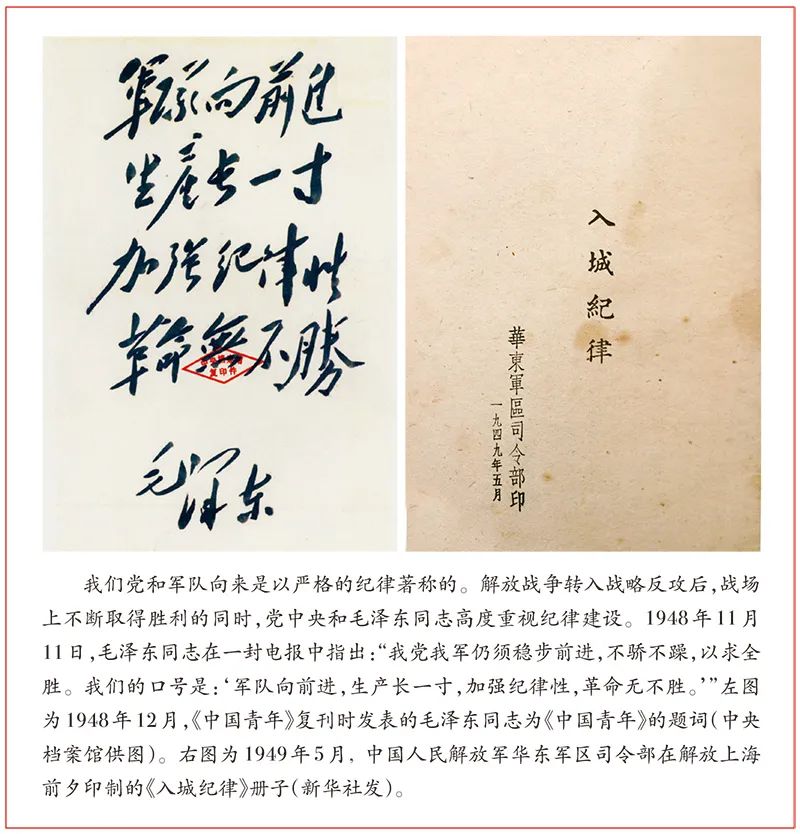 軍队向前进
生產长一寸
加強纪律性
革命無不勝
毛泽东
复印件
入城紀律
華東軍區司令部印
一九四九年五月
我们党和军队向来是以严格的纪律著称的。解放战争转入战略反攻后,战场
上不断取得胜利的同时,党中央和毛泽东同志高度重视纪律建设。1948年11月
11日,毛泽东同志在一封电报中指出:“我党我军仍须稳步前进,不骄不躁,以求全
胜。我们的口号是:‘军队向前进,生产长一寸,加强纪律性,革命无不胜。’”左图
为1948年12月,《中国青年》复刊时发表的毛泽东同志为《中国青年》的题词(中央
档案馆供图)。右图为1949年5月, 中国人民解放军华东军区司令部在解放上海
前夕印制的《入城纪律》册子(新华社发)。